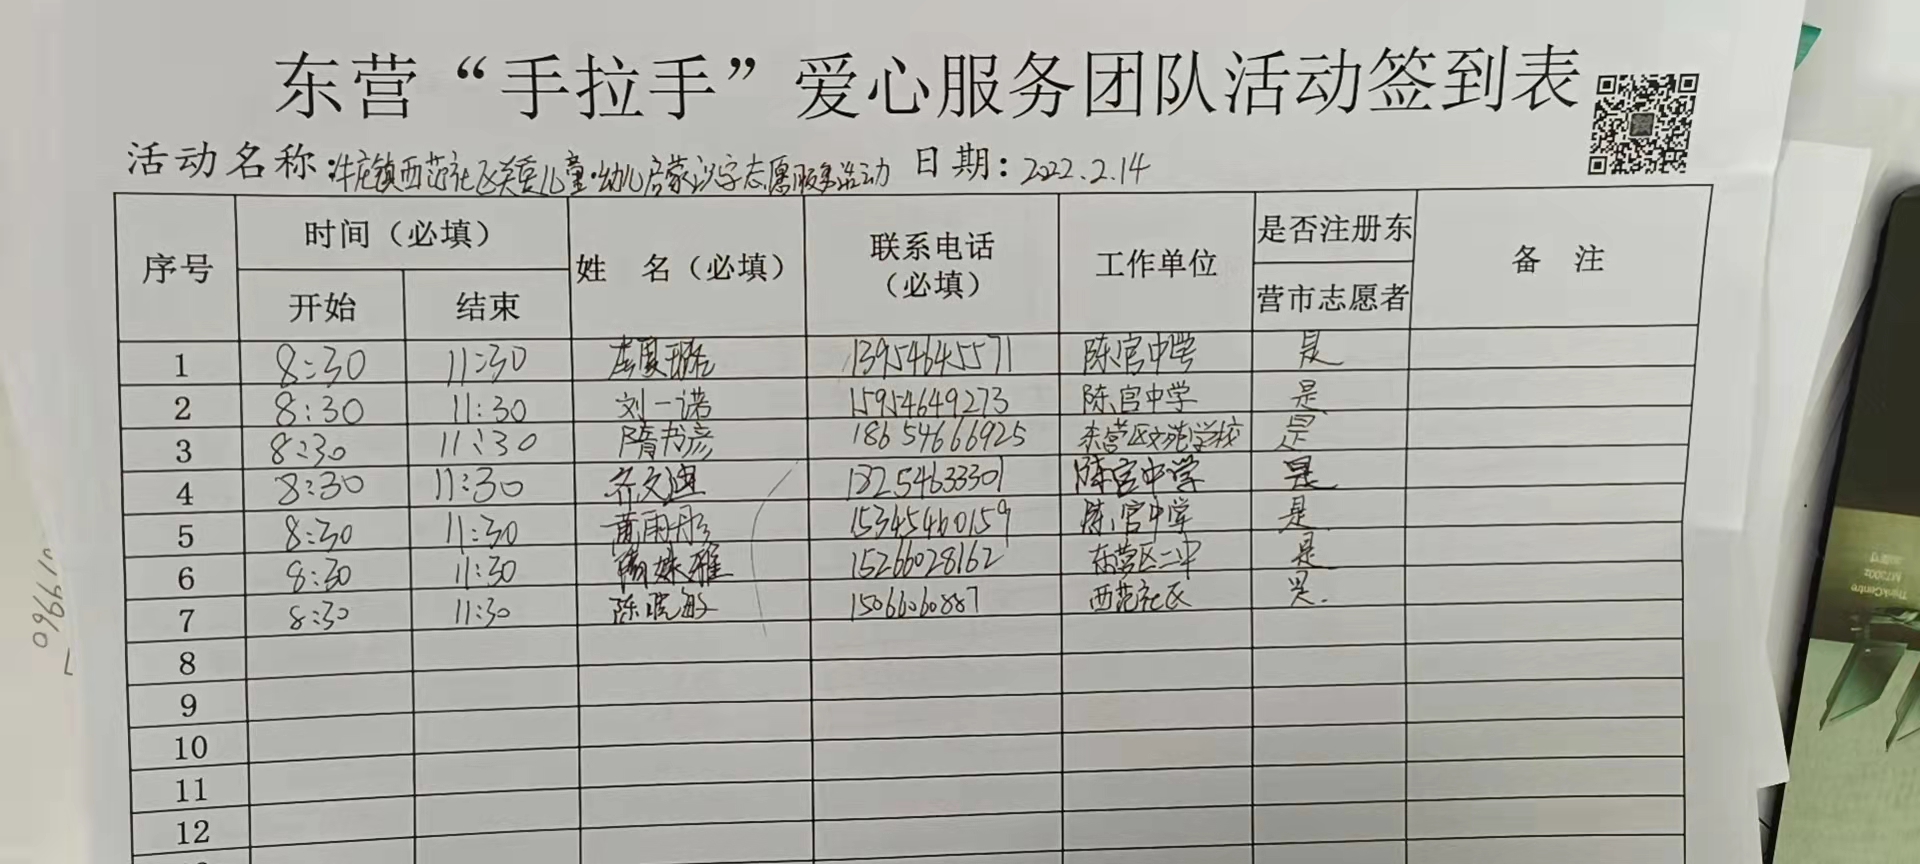 东营“手拉手”爱心服务团队活动签到表
活动名称:牛庄镇西范社区关爱儿童·幼儿启蒙识字志愿服务活动 日期: 2022.2.14
序号 时间(必填) 姓 名(必填) 联系电话(必填) 工作单位 是否注册东营市志愿者 备 注
开始 结束
1 8:30 11:30 13954645571 陈官中学 是
2 8:30 11:30 刘一诺 15954649273 陈官中学 是
3 8:30 11:30 隋书彦 18654666925 东营区文苑学校 是
4 8:30 11:30 齐文迪 18254633301 陈官中学 是
5 8:30 11:30 雨彤 15345460159 陈官中学 是
6 8:30 11:30 姝雅 15266028162 东营区二中 是
7 8:30 11:30 陈晓敏 15066060887 西范社区 是.
8
9
10
11
12
ThinkCentre
M7200z